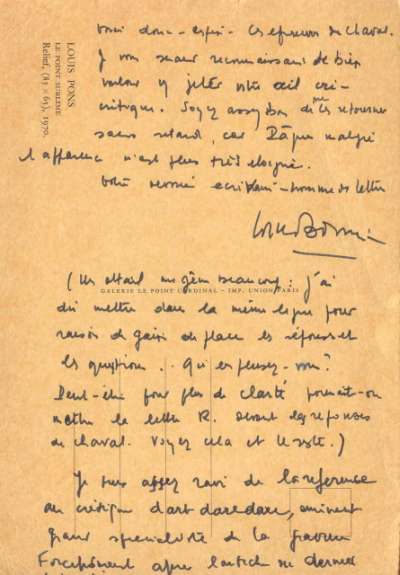 LOUIS PONS
LE POINT SUBLIME
Relief, (83 × 65), 1970.
Voici donc - enfin - les épreuves de Chaval.
Je vous serais reconnaissant de bien
vouloir y jeter votre œil cri-
critique. Soyez assez bon de me les retourner
sans retard, car Pâques malgré
l'apparence n'est plus très éloigné.
Votre dévoué écrivain - homme de lettre
(Un détail me gêne beaucoup : j'ai
GALERIE LE POINT CARDINAL - IMP. UNION PARIS
dû mettre dans la même ligne pour
raison de gain de place les réponses et
les questions.. Qu'en pensez-vous ?
Peut-être pour plus de clarté pourrait-on
mettre la lettre R. devant les réponses
de Chaval. Voyez cela et le reste.)
Je suis assez ravi de la référence
au critique d'art daredare, éminent
grand spécialiste de la gravure
Forcément après l'article de dernier